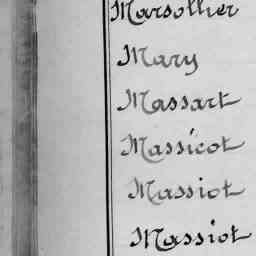 Marsollier
Mary
Massart
Massicot
Massiot
Massiot